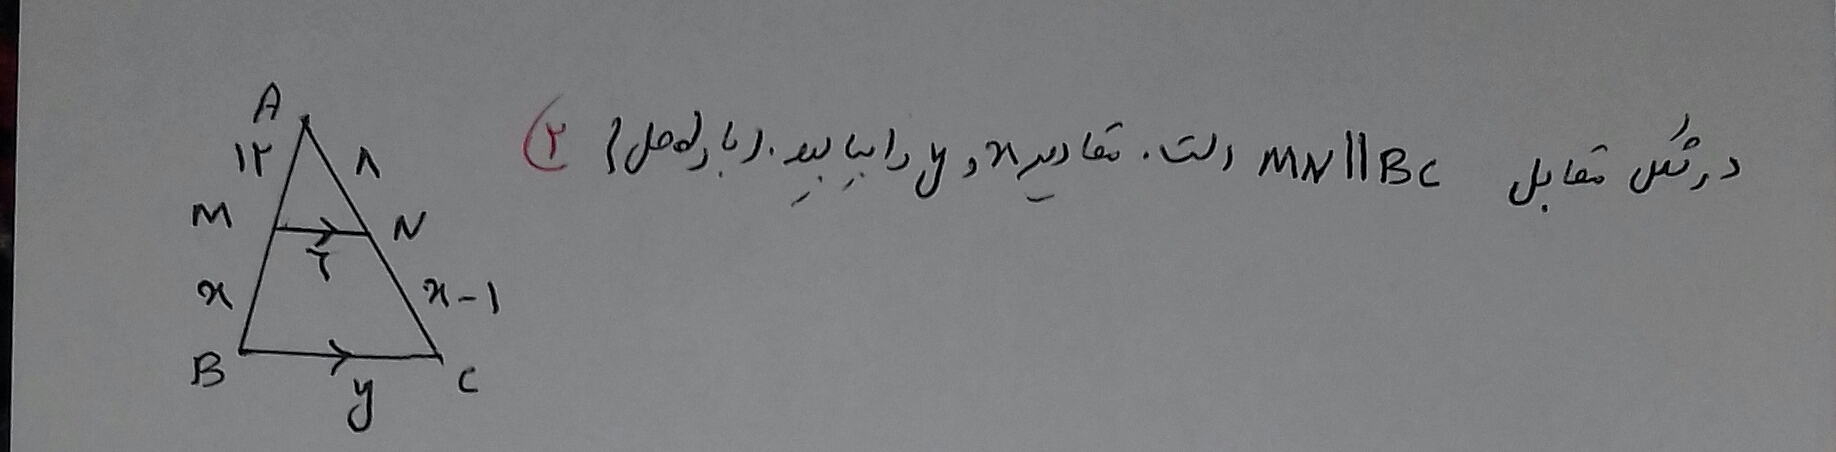 در شکل مقابل MN||BC است. مقادیر x و y را بیابید. (با راه حل) ۲
A
۱۲ ۸
M N
x x-۱
B C
y